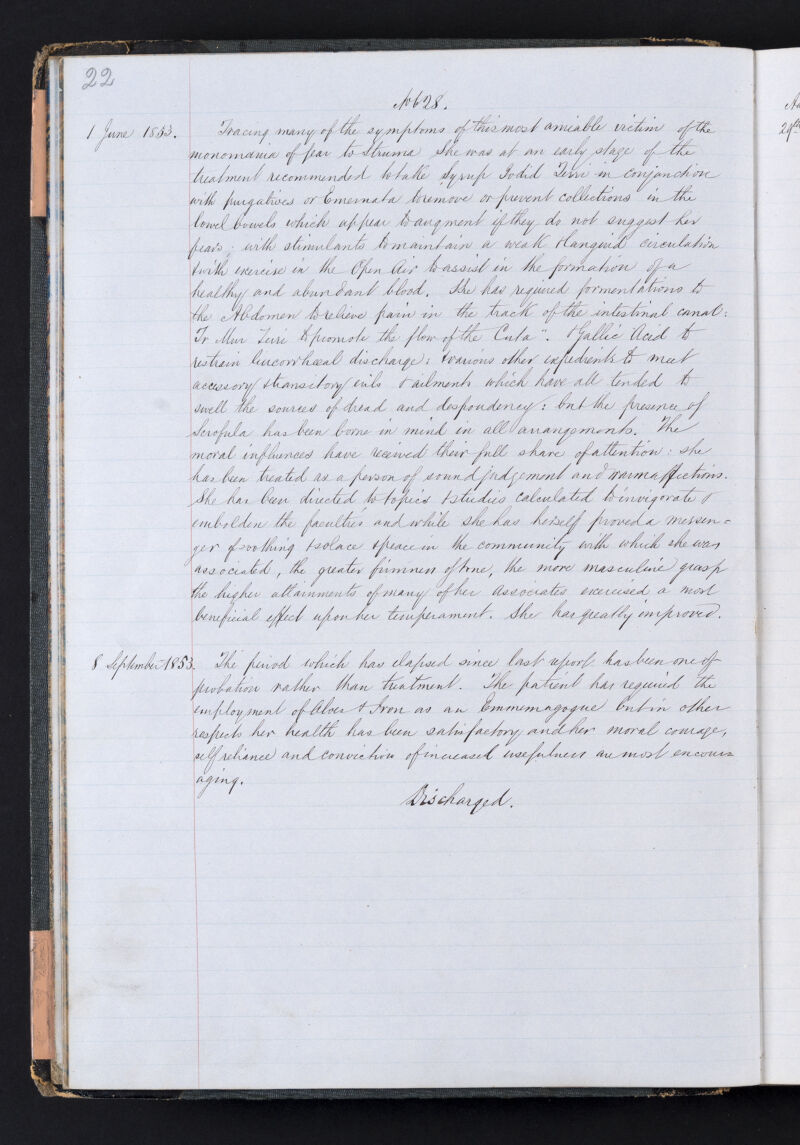 22
No 628.
1 June 1853. Tracing many of the symptoms of this most amiable victim of the
monomania of fear to Struma She was at an early stage of the
treatment recommended to take Syrup Iodid Ferri in conjunction
with purgatives or Enemata to remove or prevent collections in the
lowel bowels which appear to augment if they do not suggest her
fears; with stimulants to maintain a weak & languid circulation
& with exercise in the Open Air to assist in the formation of a
healthy and abundant blood. She has required fomentations to
the Abdomen to relieve pain in the track of the intestinal canal:
Tr Mur Ferri to promote the flow of the Cata". & Gallic Acid to
restrain leucorrhœal discharge: & various other expedients to meet
accessory & transitory evils & ailments which have all tended to
swell the sources of dread and despondency: but the presence of
Scrofula has been borne in mind in all arrangements. The
moral influences have received their full share of attention: she
has been treated as a person of sound judgement and warm affections.
She has been directed to topics & studies calculated to invigorate &
embolden the faculties and while she has herself proved a messen-
ger of soothing & solace & peace in the community with which she was
associated, the greater firmness of tone, the more masculine grasp
the higher attainments of many of her associates exercised a most
beneficial effect upon her temperament. She has greatly improved.
8 September 1853. The period which has elapsed since last report has been one of
probation rather than treatment. The patient has required the
employment of Aloes & Iron as an Emmemagogue but in other
respects her health has been satisfactory and her moral courage,
self reliance and conviction of increased usefulness are most encour
aging.
Discharged.
29th